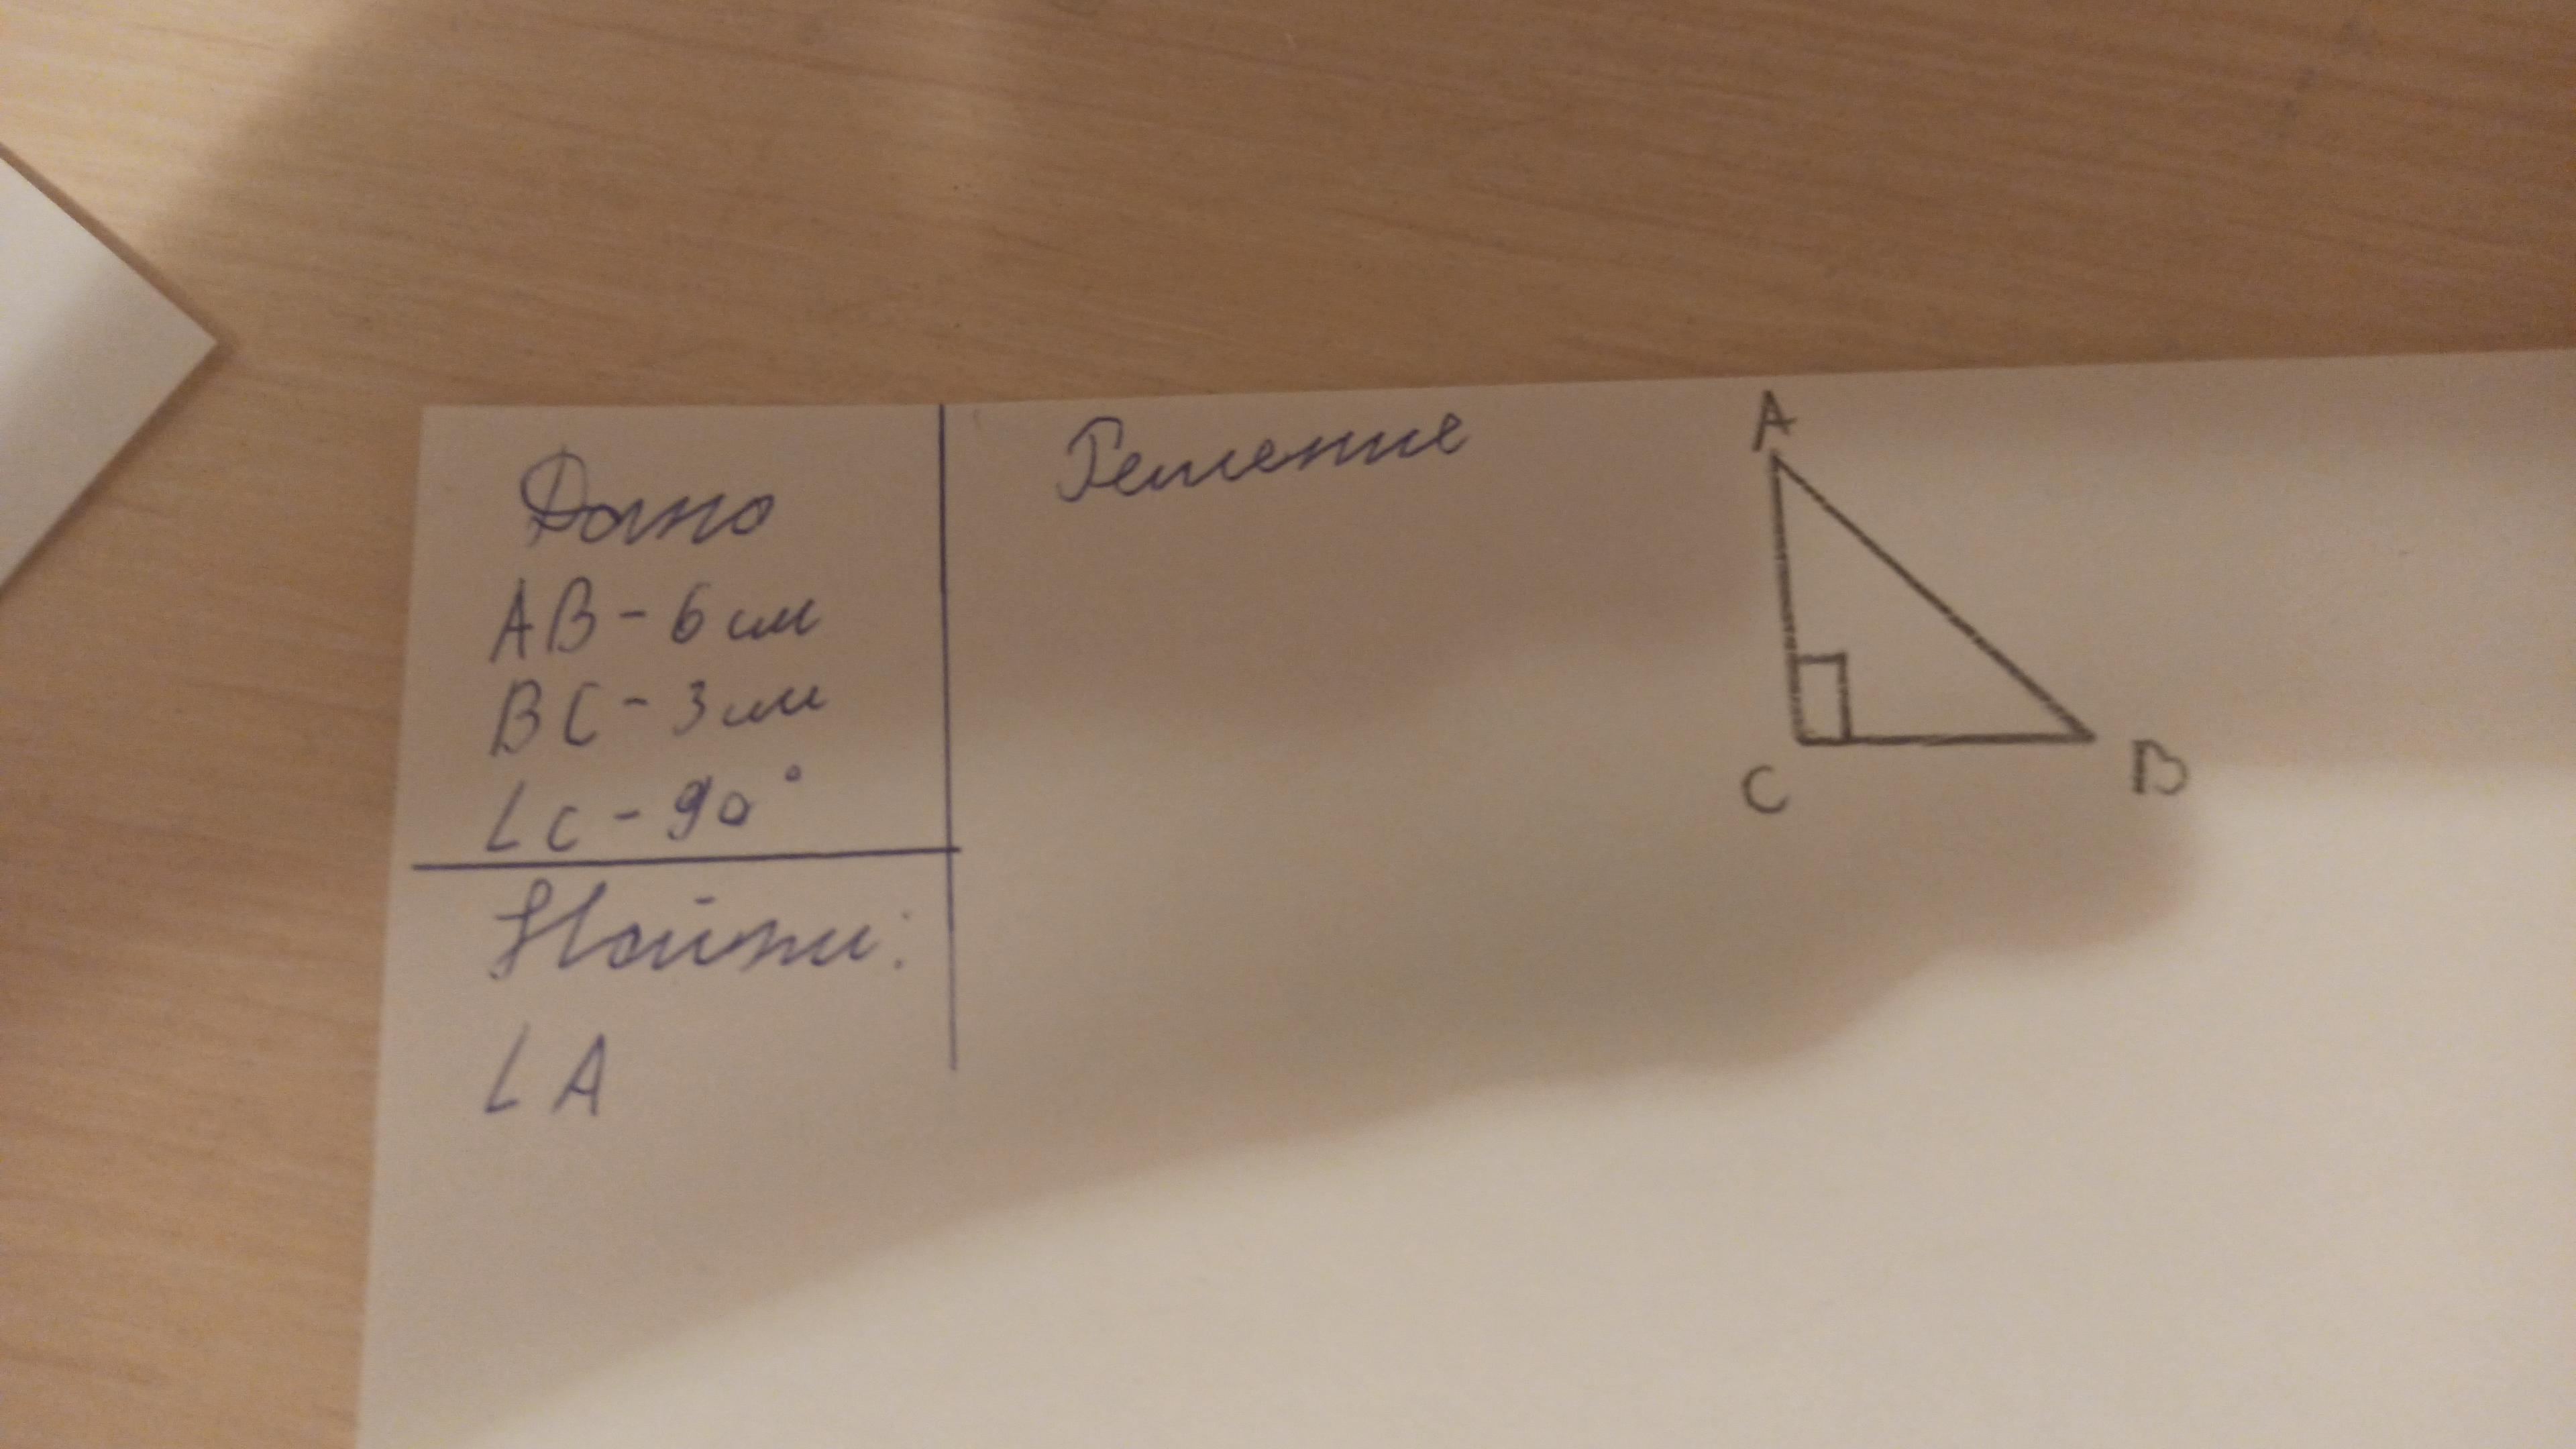 Дано
AB - 6 см
BC - 3 см
∠C - 90°
Найти:
∠A
Решение
A
C
B